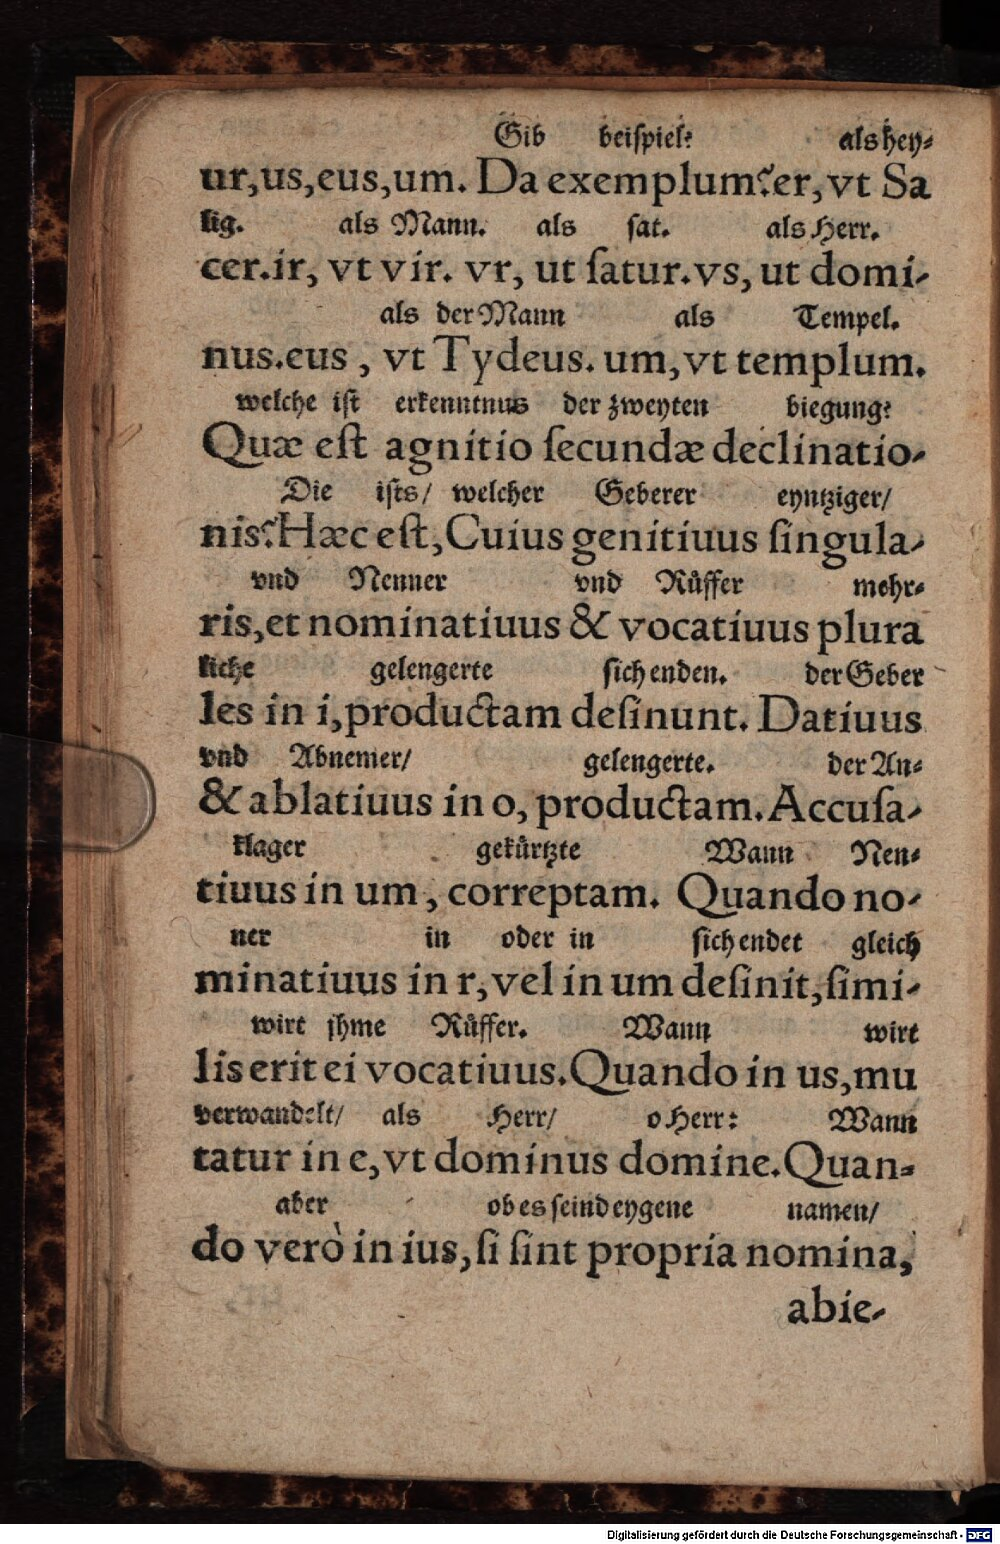 Gib beispiel? als hey-
ur,us,eus,um. Da exemplum? er, vt Sa
lig. als Mann. als sat. als Herr.
cer.ir, vt vir. vr, ut ſatur.vs, ut domi-
als der Mann als Tempel.
nus.eus, vt Tydeus. um, vt templum.
welche iſt erkenntnus der zweyten biegung?
Quæ eſt agnitio ſecundæ declinatio-
Die iſts/ welcher Geberer eyntziger/
nis? Hæc eſt, Cuius genitiuus ſingula-
vnd Nenner vnd Rüffer mehr-
ris, et nominatiuus & vocatiuus plura
liche gelengerte ſich enden. der Geber
les in i, productam deſinunt. Datiuus
vnd Abnemer/ gelengerte. der An-
& ablatiuus in o, productam. Accuſa-
klager gekürtzte Wann Nen-
tiuus in um, correptam. Quando no-
ner in oder in ſich endet gleich
minatiuus in r, vel in um deſinit, ſimi-
wirt jhme Rüffer. Wann wirt
lis erit ei vocatiuus. Quando in us, mu
verwandelt/ als Herr/ o Herr: Wann
tatur in e, vt dominus domine. Quan-
aber ob es ſeind eygene namen/
do verò in ius, ſi ſint propria nomina,
abie-
Digitalisierung gefördert durch die Deutsche Forschungsgemeinschaft - DFG